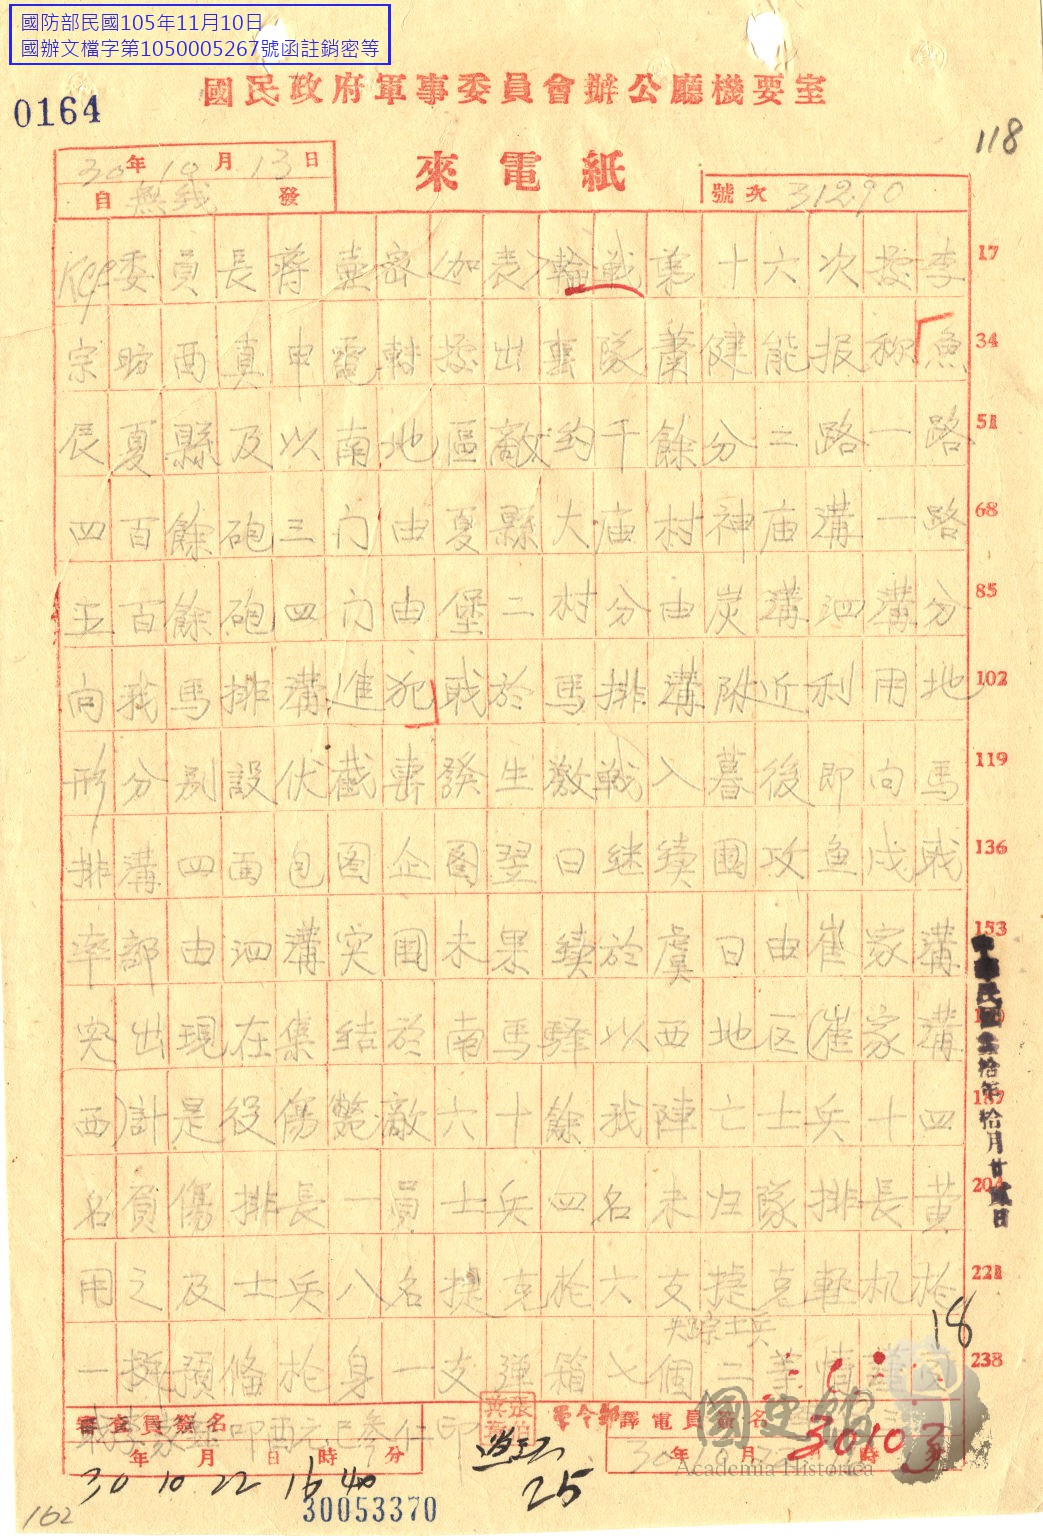 國防部民國105年11月10日
國辦文檔字第1050005267號函註銷密等
國民政府軍事委員會辦公廳機要室
0164
118
來電紙
30年10月13日
自無线發
號次31290
委員長蔣 密(加表)輪战第十六次據李 17
宗昉酉真申電轉據出擊隊蕭健能报称魚 34
辰夏縣及以南地區敵约千餘分二路一路 51
四百餘砲三门由夏縣大庙村神庙溝一路 68
五百餘砲四门由堡二村分由炭溝泗溝分 85
向我馬排溝進犯戝於馬排溝附近利用地 102
形分别設伏截擊發生激戦入暮後即向馬 119
排溝四面包图企图翌日继續圍攻魚戌戝 136
率部由泗溝突圍未果續於虞日由崔家溝 153
突出現在集結於南馬 以西地区(崔家溝
西)計是役傷斃敵六十餘我陣亡士兵十四 187
名負傷排長一員士兵四名未归隊排長黄 204
用之及士兵八名捷克枪六支捷克輕机枪 221
失踪士兵
一挺預偹枪身一支彈箱七個二 情 238
中華民國叁拾年拾月廿貳日
18
審查員簽名
軍令部
譯電員簽名
年月日時分
30 10 22 16 40
30103
25
30053370
162
國史館
Academia Historica